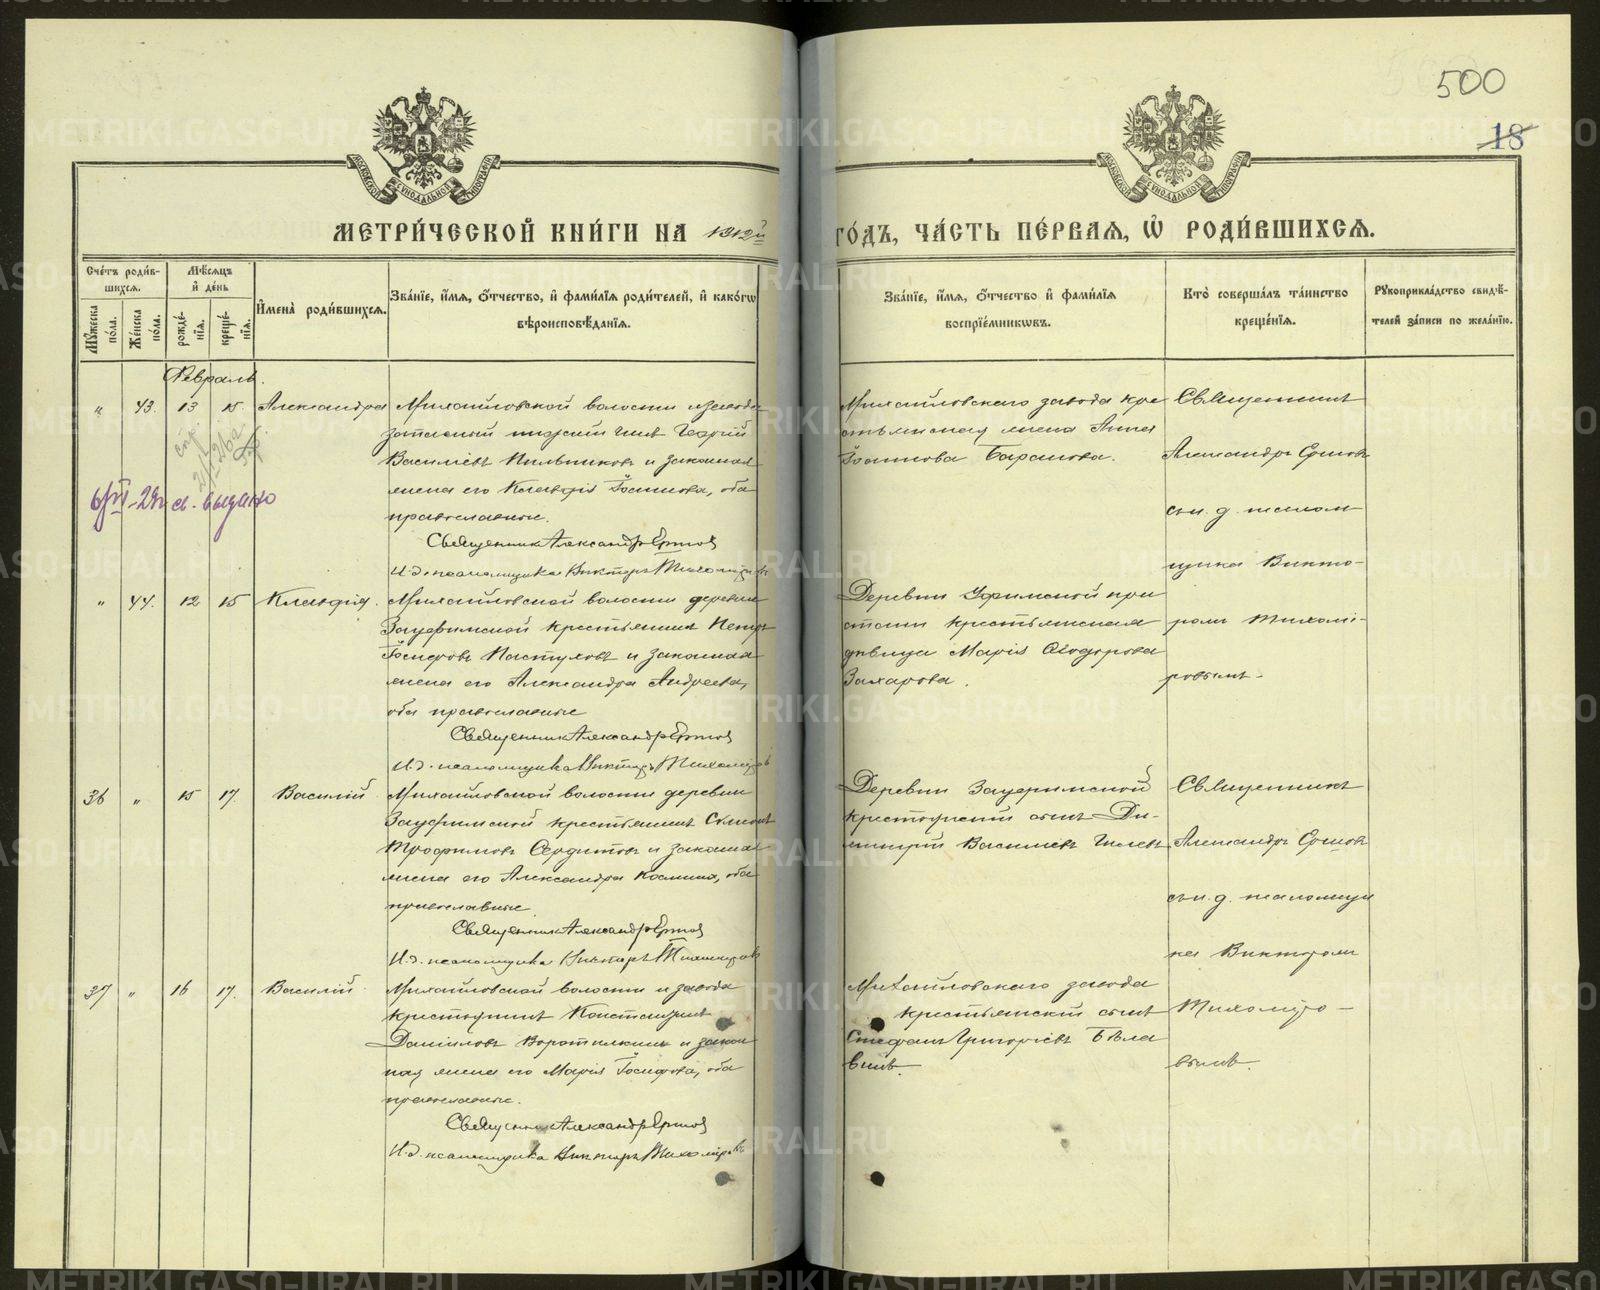 500
18
МЕТРИ́ЧЕСКОЙ КНИ́ГИ НА 1912й ГО́ДЪ, ЧА́СТЬ ПЕ́РВАЯ, Ѡ҆ РОДИ́ВШИХСѦ.
Сче́тъ роди́в-
шихсѧ.
Му́жеска по́ла.
Же́нска по́ла.
Мѣ́сѧцъ и҆ де́нь
рожде́нїѧ.
креще́нїѧ.
И҆мена̀ роди́вшихсѧ.
Зва́нїе, и҆́мѧ, ѻ҆́тчество, и҆ фами́лїѧ роди́телей, и҆ како́гѡ
вѣроисповѣ́данїѧ.
Зва́нїе, и҆́мѧ, ѻ҆́тчество и҆ фами́лїѧ
воспрїе́мникѡвъ.
Кто̀ соверша́лъ та́инство
креще́нїѧ.
Рꙋкоприкла́дство свидѣ́-
телей за́писи по жела́нїю.
Февраль.
" 43. 13 15. Александра
Михайловской волости и завода
запасный писарь Георгій
Василіевъ Пильщиковъ и законная
жена его Клавдія Іоаннова, оба
православные.
Священник Александр Ершов
И. д. псаломщика Викторъ Тихоміров
Михайловскаго завода кре
стьянская жена Анна
Іоаннова Баранова.
Священникъ
Александръ Ершовъ
съ и. д. псалом
щика Викто-
ромъ Тихомі-
ровымъ.
6/VI-29г. св. выдано
" 44. 12 15 Клавдія.
Михайловской волости деревни
Зауфимской крестьянинъ Петръ
Іосифовъ Пастуховъ и законная
жена его Александра Андреева,
оба православные
Священник Александр Ершов
И. д. псаломщика Викторъ Тихоміров
Деревни Уфимской при
стани крестьянская
дѣвица Марія Ѳеодорова
Захарова.
36 " 15 17. Василій
Михайловской волости деревни
Зауфимской крестьянинъ Сѵмеонъ
Трофимовъ Сердитовъ и законная
жена его Александра Космина, оба
православные
Священник Александр Ершов
И. д. псаломщика Викторъ Тихоміров
Деревни Зауфимской
крестьянскій сынъ Ди-
митрій Василіевъ Гилевъ
Священникъ
Александръ Ершовъ
съ и. д. псаломщи
ка Викторомъ
Тихоміро-
вымъ.
37 " 16 17. Василій.
Михайловской волости и завода
крестьянинъ Константинъ
Даніиловъ Воротилкинъ и закон
ная жена его Марія Іосифова, оба
православные.
Священник Александр Ершов
И. д. псаломщика Викторъ Тихоміровъ
Михайловскаго завода
крестьянскій сынъ
Стефанъ Григоріевъ Бѣла
винъ.